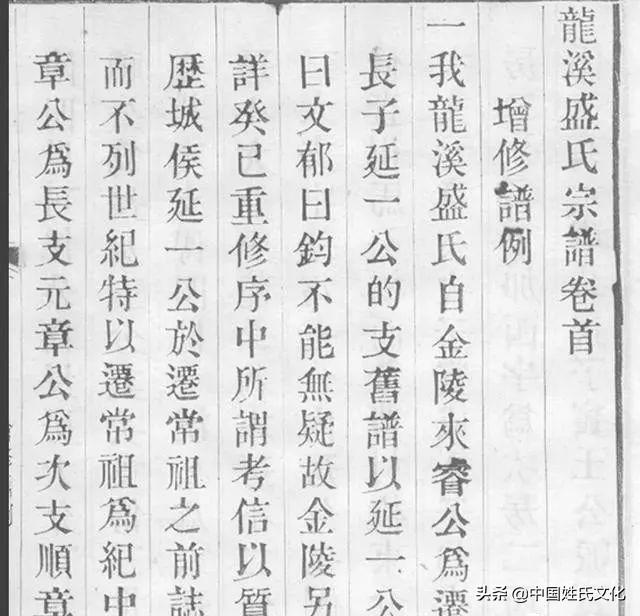 龍溪盛氏宗譜卷首
增修譜例
一我龍溪盛氏自金陵來睿公爲遷
長子延一公的支舊譜以延一公
曰文郁曰鈞不能無疑故金陵另
詳癸巳重修序中所謂考信以質
歷城侯延一公於遷常祖之前誌
而不列世紀特以遷常祖爲紀中
章公爲長支元章公爲次支順章
头条@中国姓氏文化